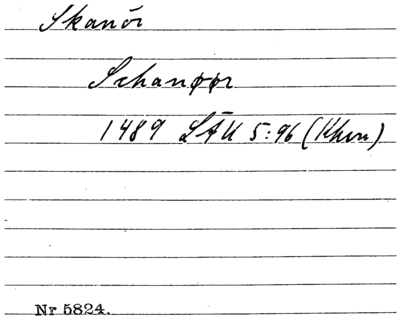 Skanör
Schanøør
1489 SÄU 5:96 (Khvn)
Nr 5824.